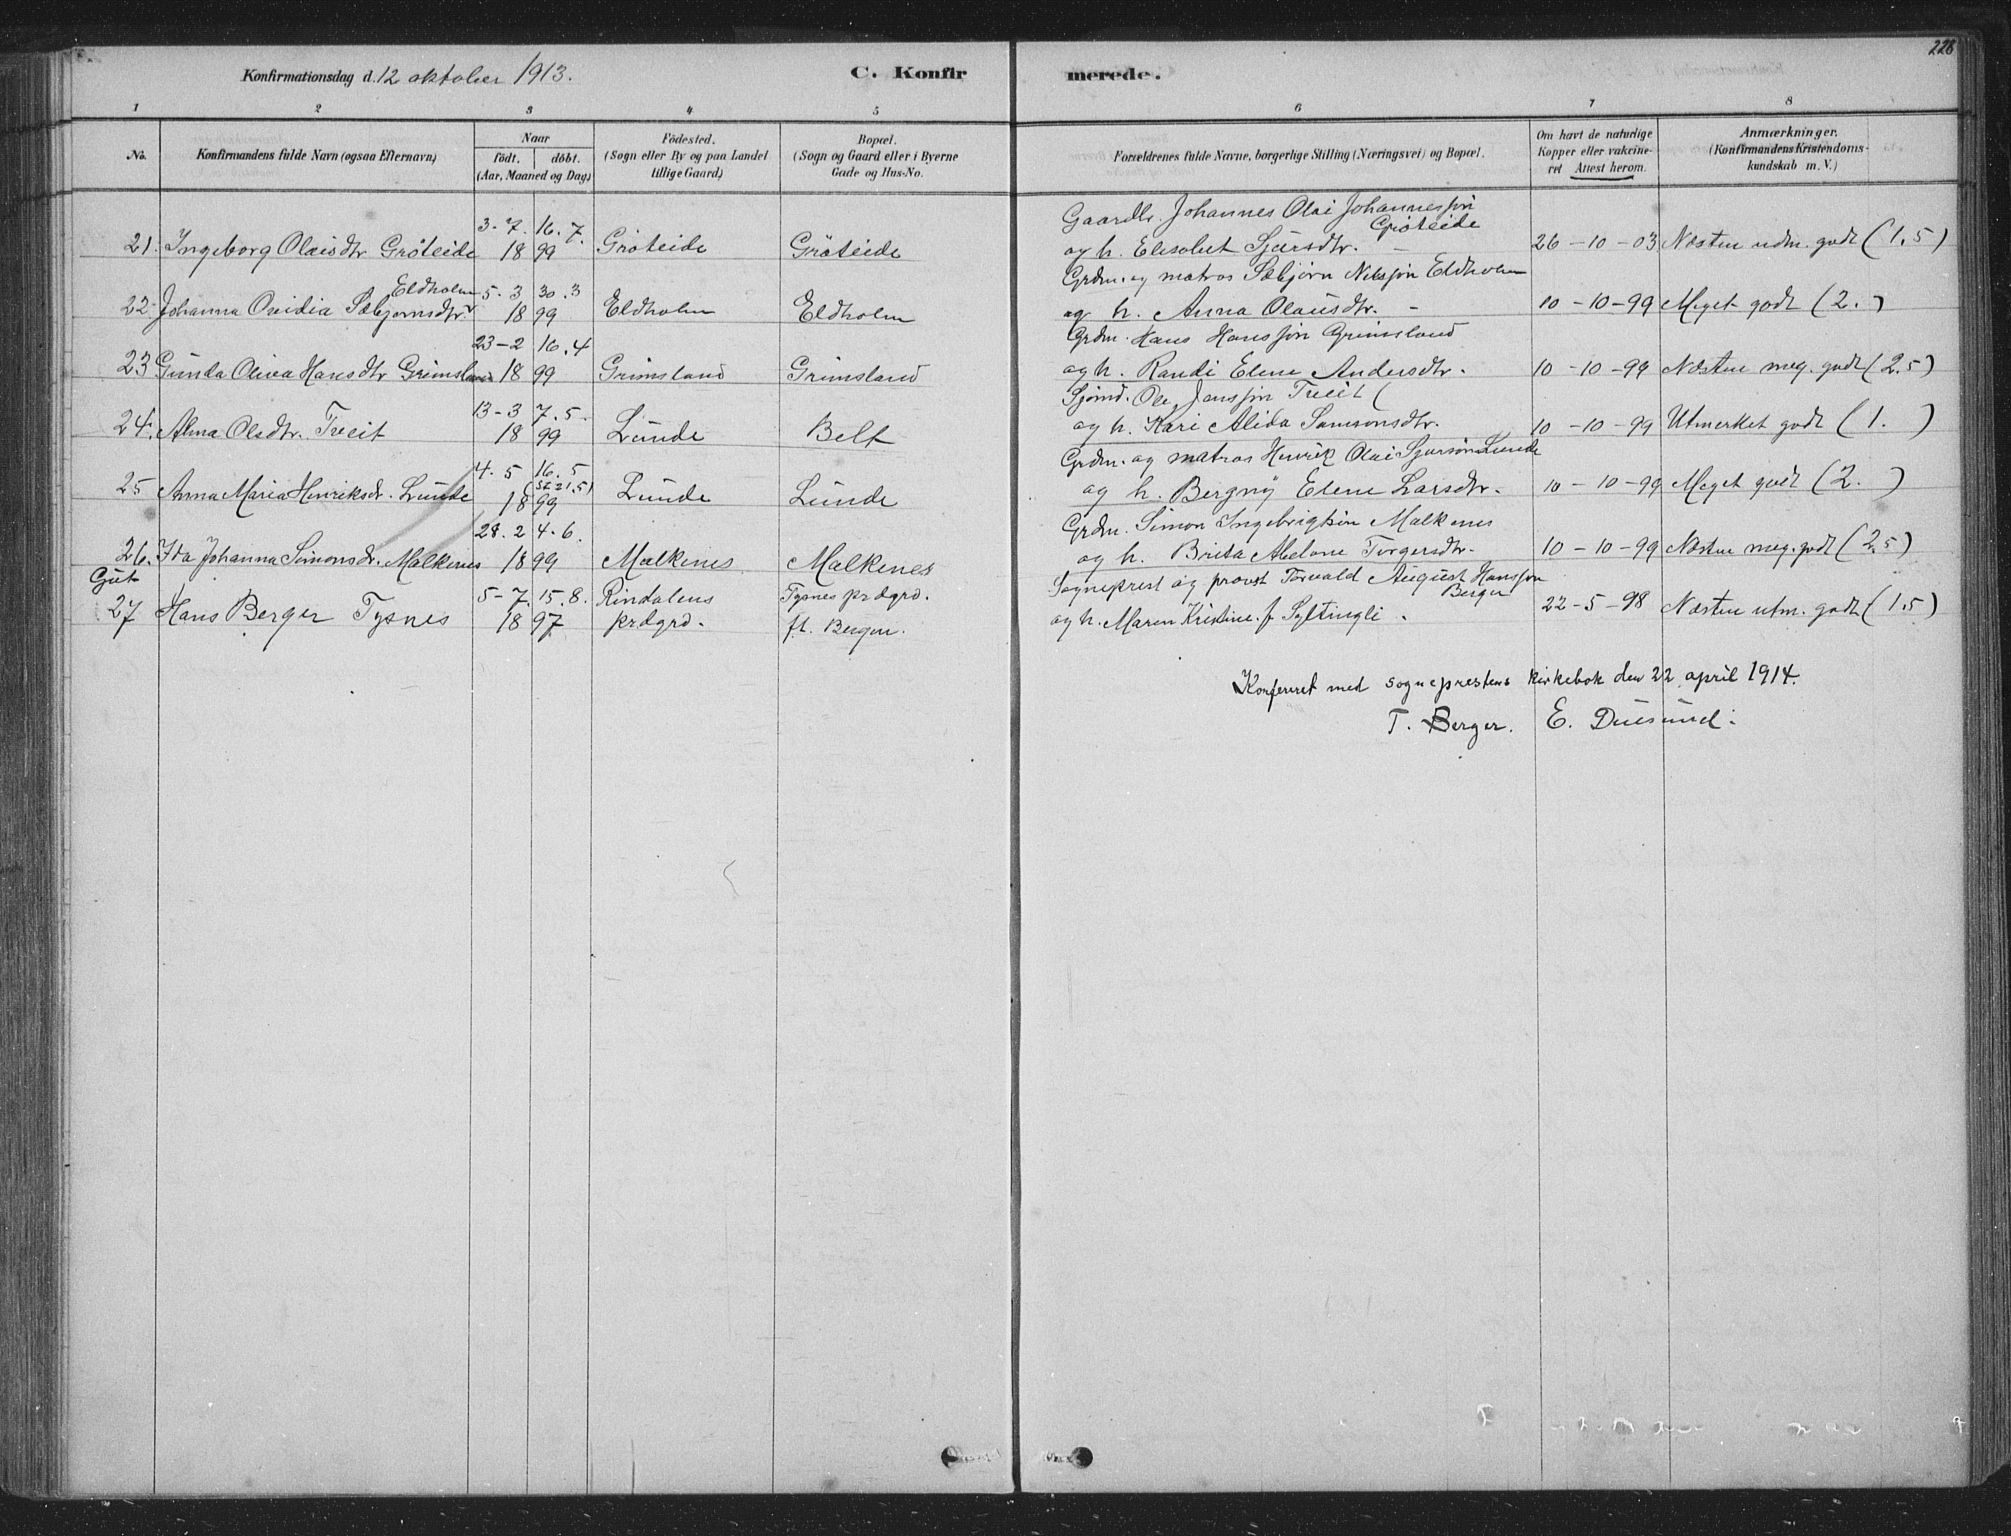 228
Konfirmationsdag d. 12 oktober 1913.
C. Konfir merede.
1 2 3 4 5 6 7 8
No.
Konfirmandens fulde Navn (ogsaa Efternavn)
Naar
födt. döbt.
(Aar, Maaned og Dag)
Födested.
(Sogn eller By og paa Landet
tillige Gaard)
Bopæl.
(Sogn og Gaard eller i Byerne
Gade og Hus-No.
Forældrenes fulde Navne, borgerlige Stilling (Næringsvei) og Bopæl.
Om havt de naturlige
Kopper eller vakcine-
ret Attest herom.
Anmærkninger.
(Konfirmandens Kristendoms-
kundskab m. V.)
3-7. 16.7. Gaardbr. Johannes Olai Johannesjön
Gröteide
21. Ingeborg Olaisdtr Gröteide 18 99 Gröteide Gröteide og h. Elisabet Sjursdtr. - 26-10-03 Næsten udm. godt (1.5)
Eldholm 5.3 30.3 Grdm. og matros Sæbjörn Nilsjön Eldholm
22. Johanna Ovidia Sæbjornsdtr. 18 99 Eldholm Eldholm og h. Anna Olausdtr. - 10-10-99 Meget godt (2.)
23-2 16.4 Grdm. Hans Hansjön Grimsland
23 Gunda Olivia Hansdtr Grimsland 18 99 Grimsland Grimsland og h. Randi Elene Andersdtr. 10-10-99 Næsten meg. godt (2.5)
13-3 7.5. Sjömd. Ole Jansjön Treit (
24. Alma Olsdtr. Treit 18 99 Lunde Belt og h. Kari Alida Samsonsdtr. 10-10-99 Utmerket godt (1. )
4.5 16.5 Grdm. og matros Henrik Olai Sjursön Lunde
(st 21.5)
25 Anna Maria Henriksdr. Lunde 18 99 Lunde Lunde og h. Bergny Elene Larsdtr. 10-10-99 Meget godt (2. )
28.2 4.6. Grdm. Simon Ingebrigtsön Malkenes
26. Ida Johanna Simonsdr. Malkenes 18 99 Malkenes Malkenes og h. Brita Abelone Torgersdtr. 10-10-99 Næsten meg. godt (2.5)
Gut
5-7. 15.8. Rindalens Tysnes prdgrd. Sogneprest og provst Torvald August Hansjön
Berger
27 Hans Berger Tysnes 18 97 prdgrd. ft. Bergen. og h. Maren Kristine f. Syltingli. 22-5-98 Næsten utm. godt (1.5)
Konfereret med sogneprestens kirkebok den 22 april 1914.
T. Berger. E. Duesund.